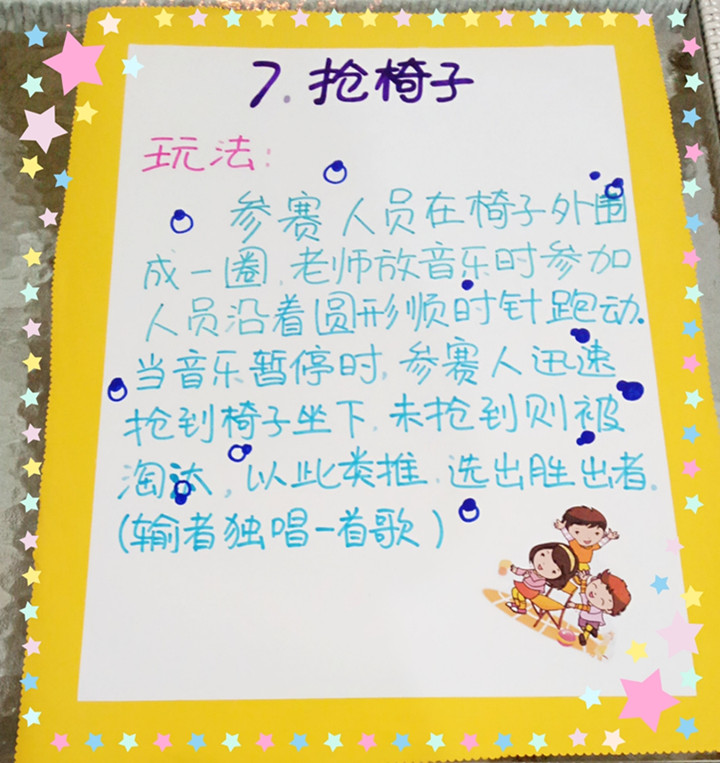 7.抢椅子
玩法:
参赛人员在椅子外围
成一圈,老师放音乐时参加
人员沿着圆形顺时针跑动.
当音乐暂停时,参赛人迅速
抢到椅子坐下,未抢到则被
淘汰,以此类推,选出胜出者.
(输者独唱一首歌)